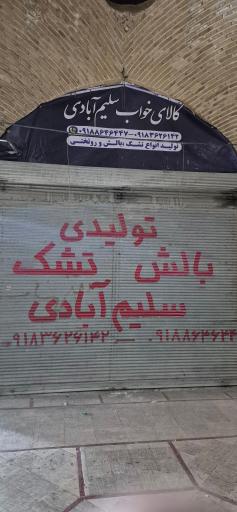 کالای خواب سلیم آبادی
۰۹۱۸۸۶۴۶۴۴۷-۰۹۱۸۳۶۲۶۱۴۲
تولید انواع تشک ،بالش و روتختی
تولیدی
بالش تشک
سلیم آبادی
۰۹۱۸۳۶۲۶۱۴۲ — ۰۹۱۸۸۶۴۶۴۴